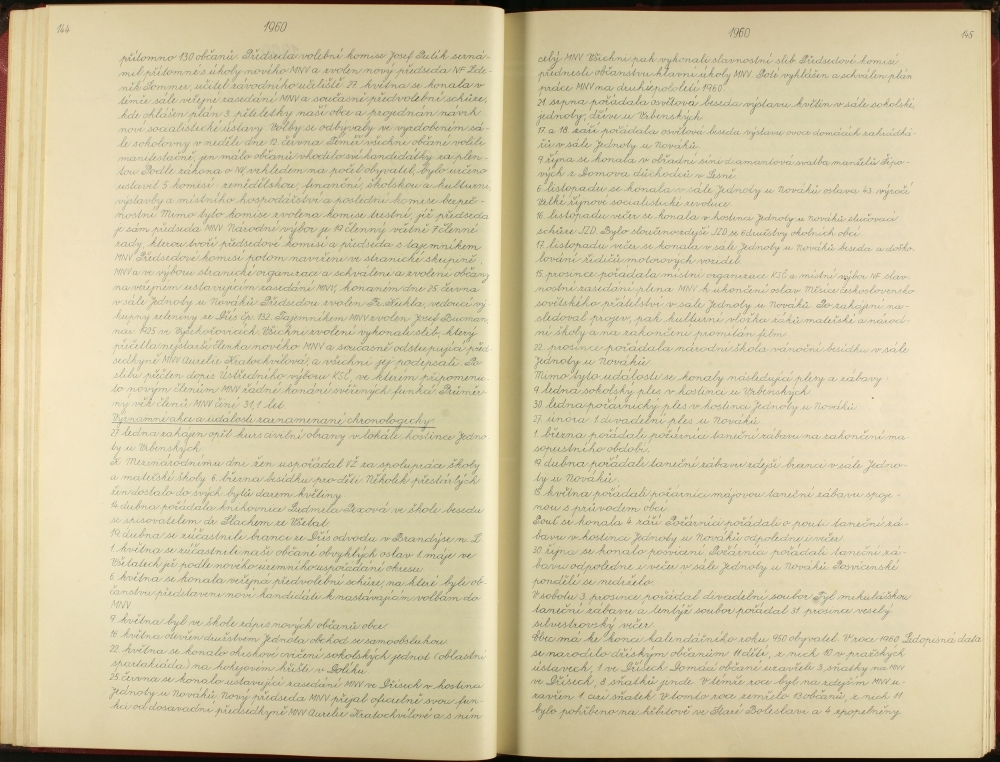 144
1960
přítomno 130 občanů. Předseda volební komise Josef Pulík sezná-
mil přítomné s úkoly nového MNV a zvolen nový předseda NF Zde-
něk Sommer, učitel závodního učiliště. 27. května se konala v
témže sále veřejné zasedání MNV a současně předvolební schůze,
kde ohlášen plán 3. pětiletky naší obce a projednán návrh
nové socialistické ústavy. Volby se odbývaly ve vyzdobeném sá-
le sokolovny v neděli dne 12. června. Téměř všichni občané volili
manifestačně, jen málo občanů vhodilo své kandidátky za plen-
tou. Podle zákona o NV, vzhledem na počet obyvatel, bylo určeno
ustavit 5 komisí: zemědělskou, finanční, školskou a kulturní,
výstavby a místního hospodářství a poslední komise bezpeč-
nostní. Mimo tyto komise zvolena komise trestní, jíž předsedá
je sám předseda MNV. Národní výbor je 19 členný včetně 7 členné
rady, kterou tvoří předsedové komisí a předseda s tajemníkem
MNV. Předsedové komisí potom navrženi ve stranické skupině
MNV a ve výboru stranické organizace a schváleni a zvoleni občany
na veřejném ustavujícím zasedání MNV, konaném dne 25. června
v sále Jednoty u Nováků. Předsedou zvolen Fr. Kuhla, vedoucí vý-
kupny zeleniny ze Dřís čp. 132. Tajemníkem MNV zvolen Josef
nar. 1925 ve Vysehořovicích. Všichni zvolení vykonali slib, který
přečetla nejstarší členka nového MNV a současně odstupující před-
sedkyně MNV Aurelie Kratochvílová, a všichni jej podepsali. Po
slibu přečten dopis Ústředního výboru KSČ, ve kterém připomenu-
to novým členům MNV řádné konání svěřených funkcí. Průměr-
ný věk členů MNV činí 31,1 let.
Významné akce a události zaznamenané chronologicky:
27. ledna zahájen opět kurs civilní obrany v lokále hostince Jedno-
ty u Vrbenských.
K Mezinárodnímu dne žen uspořádal VŽ za spolupráce školy
a mateřské školy 6. března besídku pro děti. Několik přestárlých
žen dostalo do svých bytů darem květiny.
14. dubna pořádala knihovnice Ludmila Pexová ve škole besedu
se spisovatelem dr. Flachem ze Všetat.
19. dubna se zúčastnili branci ze Dřís odvodu v Brandýse n. L.
1. května se zúčastnili naši občané obvyklých oslav 1. máje ve
Všetatech již podle nového územního uspořádání okresu.
6. května se konala veřejná předvolební schůze, na které byli ob-
čanstvu představeni noví kandidáti k nastávajícím volbám do
MNV.
9. května byl ve škole zápis nových občanů obce.
18. května otevřen družstvem Jednota obchod se samoobsluhou.
22. května se konalo okrskové cvičení sokolských jednot (oblastní
spartakiáda) na hokejovém hřišti v Dolíku.
25. června se konalo ustavující zasedání MNV ve Dřísech v hostinci
Jednoty u Nováků. Nový předseda MNV přejal oficielně svou funk-
ci od dosavadní předsedkyně MNV Aurelie Kratochvílové a s ním
1960
145
celý MNV. Všichni pak vykonali slavnostní slib. Předsedové komisí
přednesli občanstvu hlavní úkoly MNV. Poté vyhlášen a schválen plán
práce MNV na druhé pololetí 1960.
21. srpna pořádala osvětová beseda výstavu květin v sále sokolské
jednoty, dříve u Vrbenských.
17. a 18. září pořádala osvětová beseda výstavu ovoce domácích zahrádká-
řů v sále Jednoty u Nováků.
9. října se konala v obřadní síni diamantová svatba manželů
vých z Domova důchodců v Lesně.
6. listopadu se konala v sále Jednoty u Nováků oslava 43. výročí
Velké říjnové socialistické revoluce.
16. listopadu večer se konala v hostinci Jednoty u Nováků slučovací
schůze JZD. Bylo sloučeno zdejší JZD se 6 družstvy okolních obcí.
17. listopadu večer se konala v sále Jednoty u Nováků beseda a doško-
lování řidičů motorových vozidel.
15. prosince pořádala místní organizace KSČ a místní výbor NF slav-
nostní zasedání plena MNV k ukončení oslav Měsíce československo
sovětského přátelství v sále Jednoty u Nováků. Po zahájení ná-
sledoval projev, pak kulturní vložka žáků mateřské a národ-
ní školy a na zakončení promítán film.
22. prosince pořádala národní škola vánoční besídku v sále
Jednoty u Nováků.
Mimo tyto události se konaly následující plesy a zábavy:
9. ledna sokolský ples v hostinci u Vrbenských.
30. ledna požárnický ples v hostinci Jednoty u Nováků.
27. února 1. divadelní ples u Nováků.
1. března pořádali požárníci taneční zábavu na zakončení ma-
sopustního období.
19. dubna pořádali taneční zábavu zdejší branci v sále Jedno-
ty u Nováků.
15. května pořádali požárníci májovou taneční zábavu spoje-
nou s průvodem obcí.
Pouť se konala 4. září. Požárníci pořádali o pouti taneční zá-
bavu v hostinci Jednoty u Nováků odpoledne i večer.
30. října se konalo posvícení. Požárníci pořádali taneční zá-
bavu odpoledne i večer v sále Jednoty u Nováků. Posvícenské
pondělí se nedrželo.
V sobotu 3. prosince pořádal divadelní soubor Tyl mikulášskou
taneční zábavu a tentýž soubor pořádal 31. prosince veselý
silvestrovský večer.
Obec má ke konci kalendářního roku 950 obyvatel. V roce 1960 Lidopisná data
se narodilo dřísským občanům 11 dětí, z nich 10 v pražských
ústavech, 1 ve Dřísech. Domácí občané uzavřeli 3 sňatky na MNV
ve Dřísech, 8 sňatků jinde. V témže roce byl na zdejším MNV u-
zavřen 1 cizí sňatek. V tomto roce zemřelo 13 občanů, z nich 11
bylo pohřbeno na hřbitově ve Staré Boleslavi a 4 zpopelněny